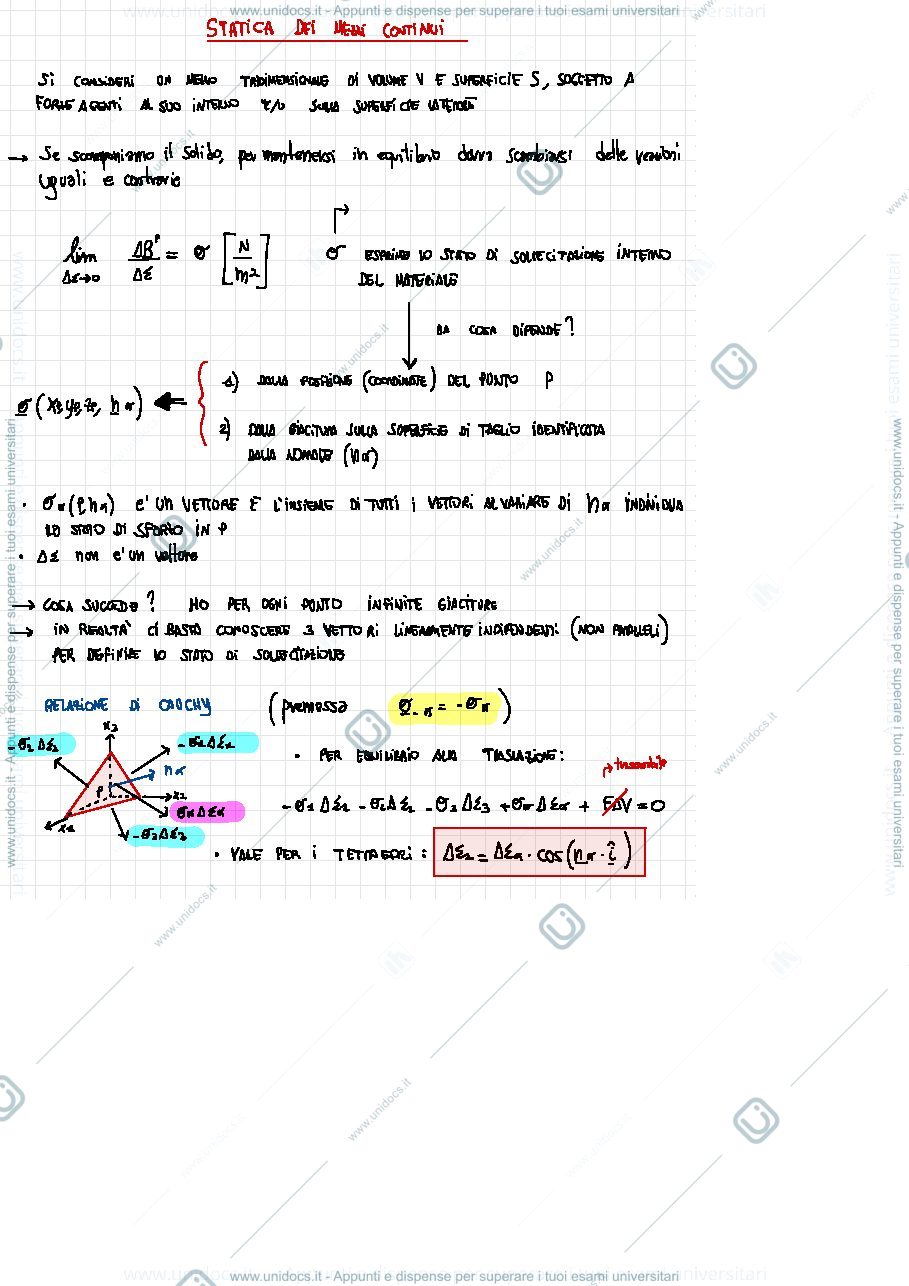 www.unidocs.it - Appunti e dispense per superare i tuoi esami universitari
STATICA DEI MEZZI CONTINUI
SI CONSIDERI UN MEZZO TRIDIMENSIONALE DI VOLUME V E SUPERFICIE S, SOGGETTO A
FORZE AGENTI AL SUO INTERNO E/O SULLA SUPERFICIE LATERALE
→ Se scomponiamo il solido, per mantenersi in equilibrio dovrà scambiarsi delle reazioni
uguali e contrarie
lim ΔR^P/ΔΣ = σ [N/m²]
ΔΣ→0
σ ESPRIME LO STATO DI SOLLECITAZIONE INTERNO
DEL MATERIALE
DA COSA DIPENDE?
1) DALLA POSIZIONE (COORDINATE) DEL PUNTO P
σ(xp, yp, zp, nα)
2) DALLA GIACITURA SULLA SUPERFICIE DI TAGLIO IDENTIFICATA
DALLA NORMALE (nα)
· σα(P, nα) e' UN VETTORE E L'INSIEME DI TUTTI I VETTORI AL VARIARE DI nα INDIVIDUA
LO STATO DI SFORZO IN P
· ΔΣ non e' un vettore
→ COSA SUCCEDE? HO PER OGNI PUNTO INFINITE GIACITURE
→ IN REALTA' CI BASTA CONOSCERE 3 VETTORI LINEARMENTE INDIPENDENTI (NON PARALLELI)
PER DEFINIRE LO STATO DI SOLLECITAZIONE
RELAZIONE DI CAUCHY (premessa σ-α = -σα)
x3
-σ1 ΔΣ1
-σ2 ΔΣ2
· PER EQUILIBRIO ALLA TRASLAZIONE:
trascurabile
nα
P
x2
-σ1 ΔΣ1 -σ2 ΔΣ2 -σ3 ΔΣ3 +σα ΔΣα + FΔV = 0
σα ΔΣα
x1
-σ3 ΔΣ3
· VALE PER I TETRAEDRI: ΔΣ1 = ΔΣα · cos(nα · î)
www.unidocs.it - Appunti e dispense per superare i tuoi esami universitari